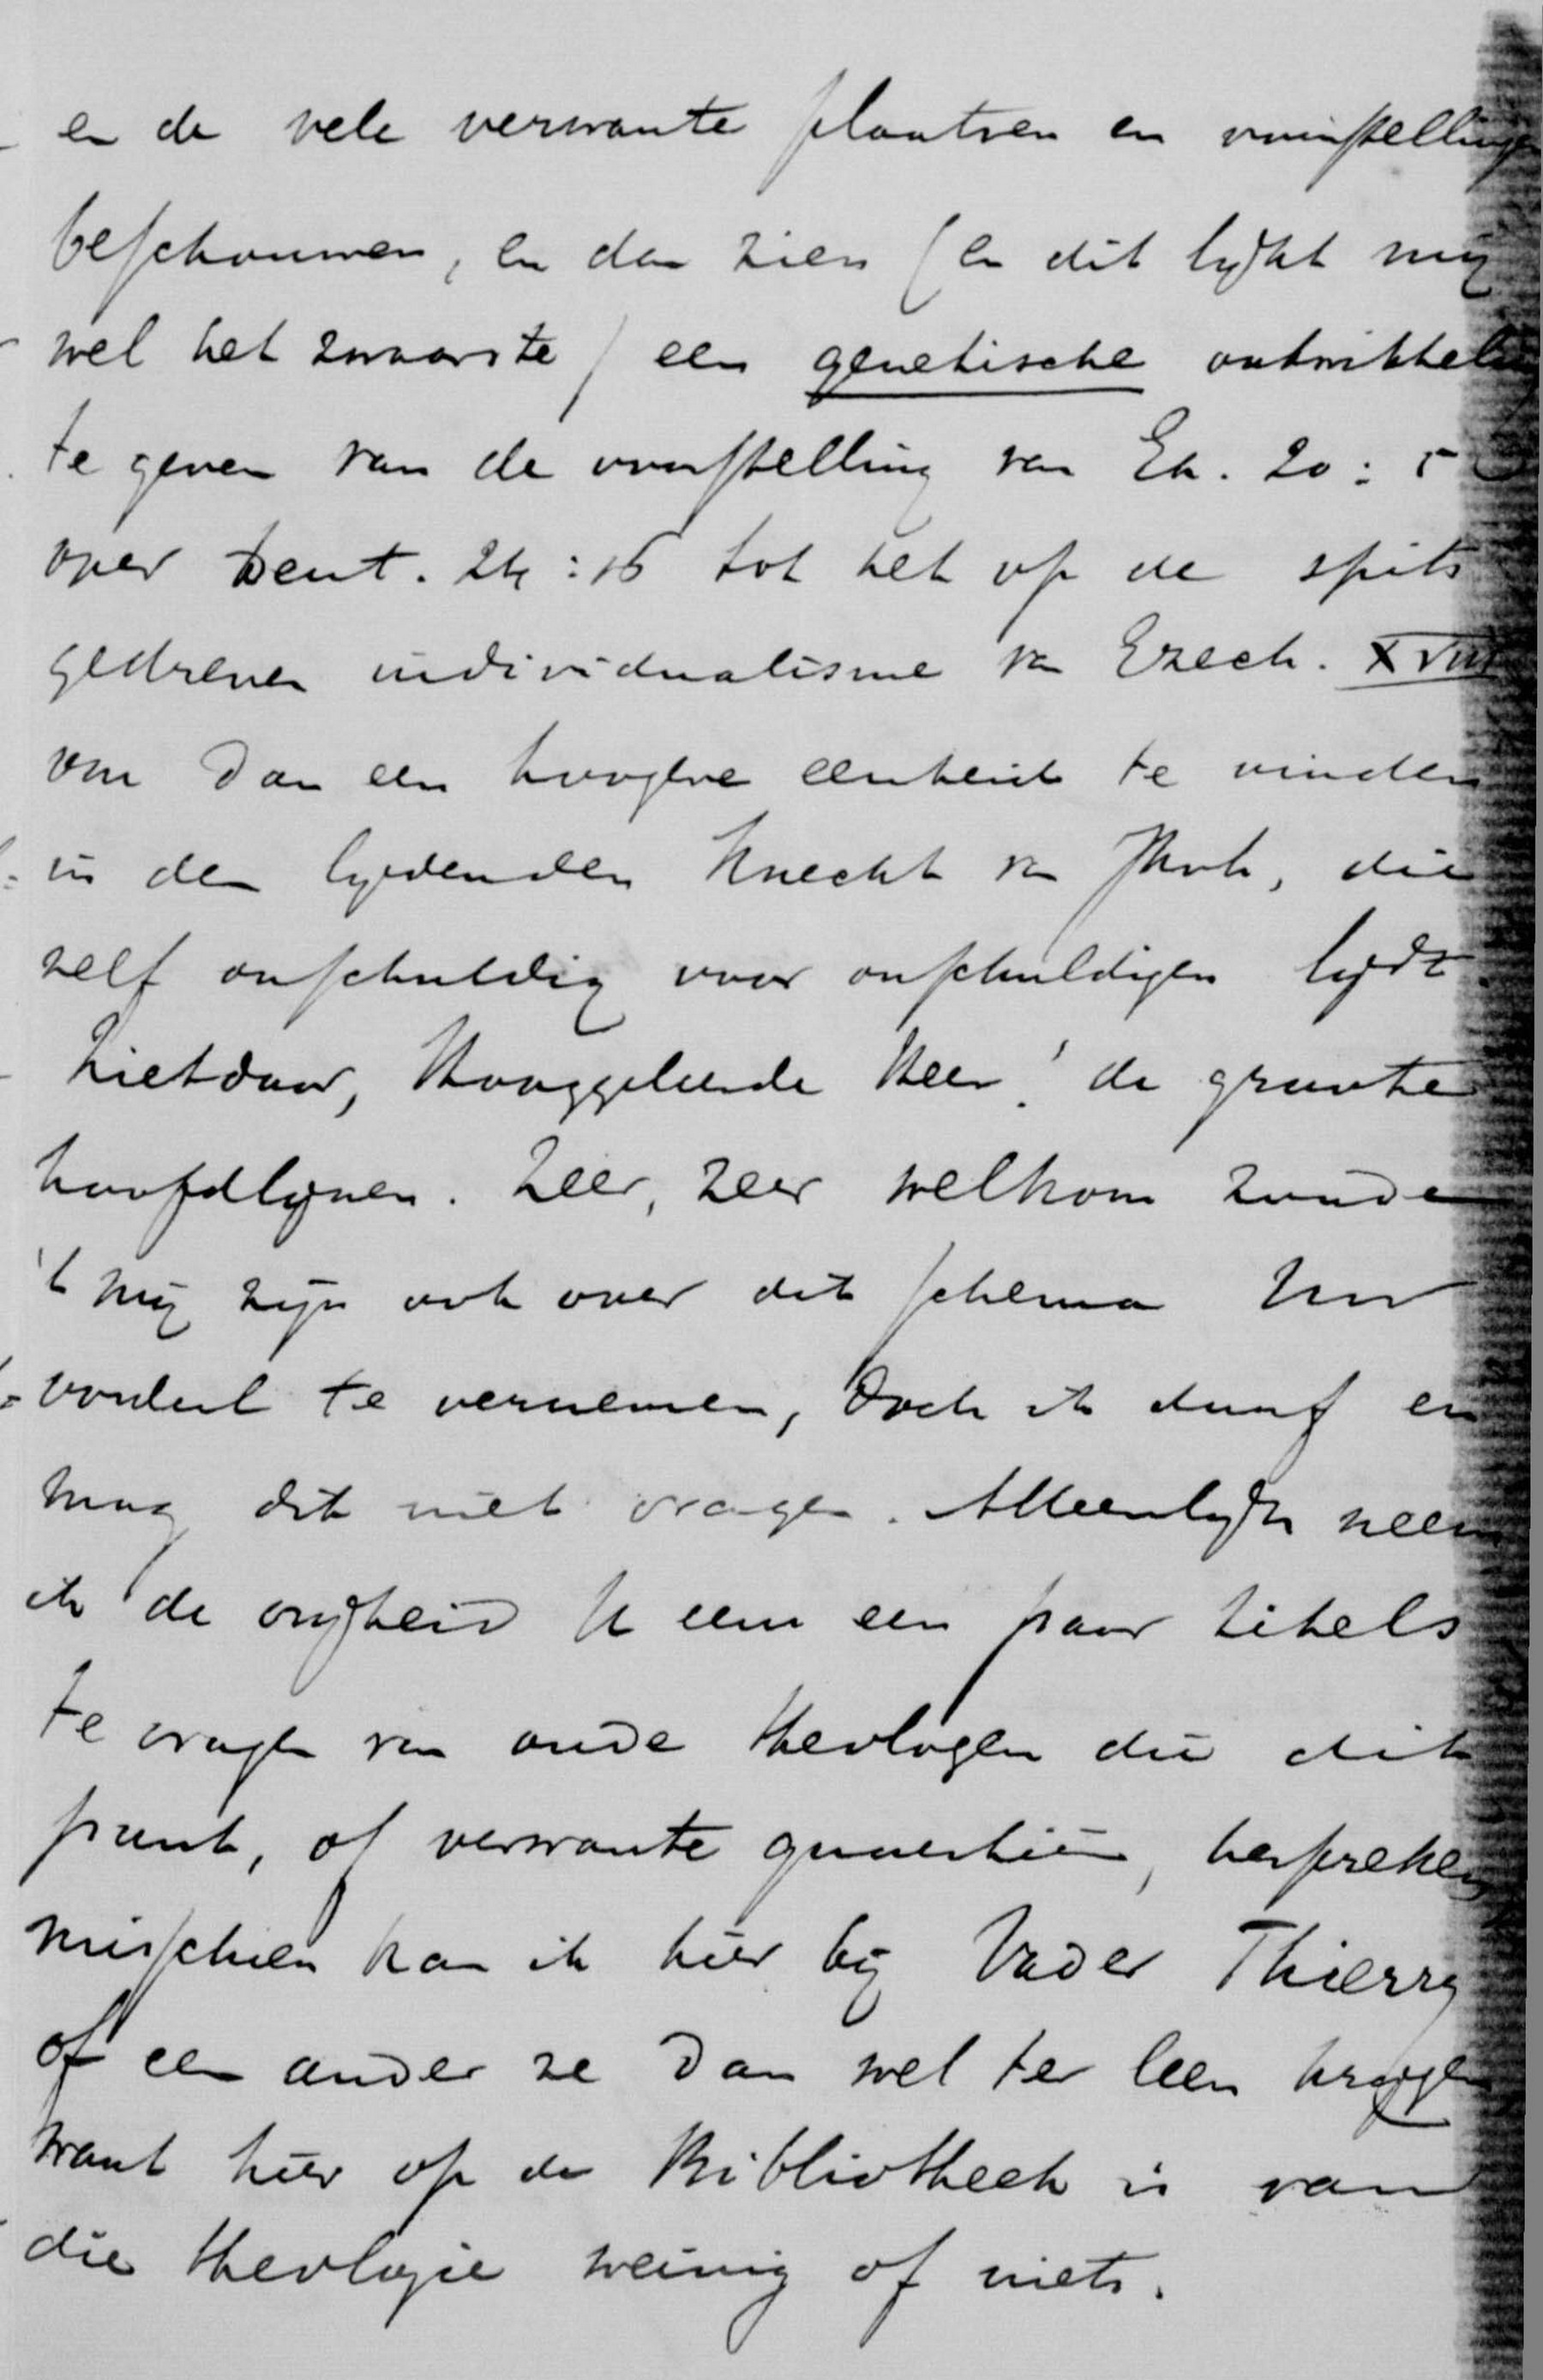 en de vele verwante plaatsen en voorstellingen
beschouwen, en dan zien (en dit lijkt mij
wel het zwaarste) een genetische ontwikkeling
te geven van de voorstelling van Ex. 20:5
over Deut. 24:16 tot het op de spits
gedreven individualisme van Ezech. XVIII
om dan een hoogere eenheid te vinden
in den lijdenden Knecht van Jhvh, die
zelf onschuldig voor onschuldigen lijdt.
Ziet daar, Hooggeleerde Heer! de groote
hoofdlijnen. Zeer, zeer welkom zoude
't mij zijn ook over dit schema Uw
oordeel te vernemen, doch ik durf en
mag dit niet vragen. Alleenlijk neem
ik de vrijheid U een een paar titels
te vragen van oude theologen die dit
punt, of verwante quaestiën, bespreken
misschien kan ik hier bij Vader Thierry
of een ander ze dan wel ter leen krijgen
want hier op de Bibliotheek is van
die theologie weinig of niets.